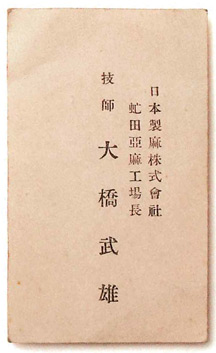 日本製麻株式會社
虻田亞麻工場長
技師 大橋武雄